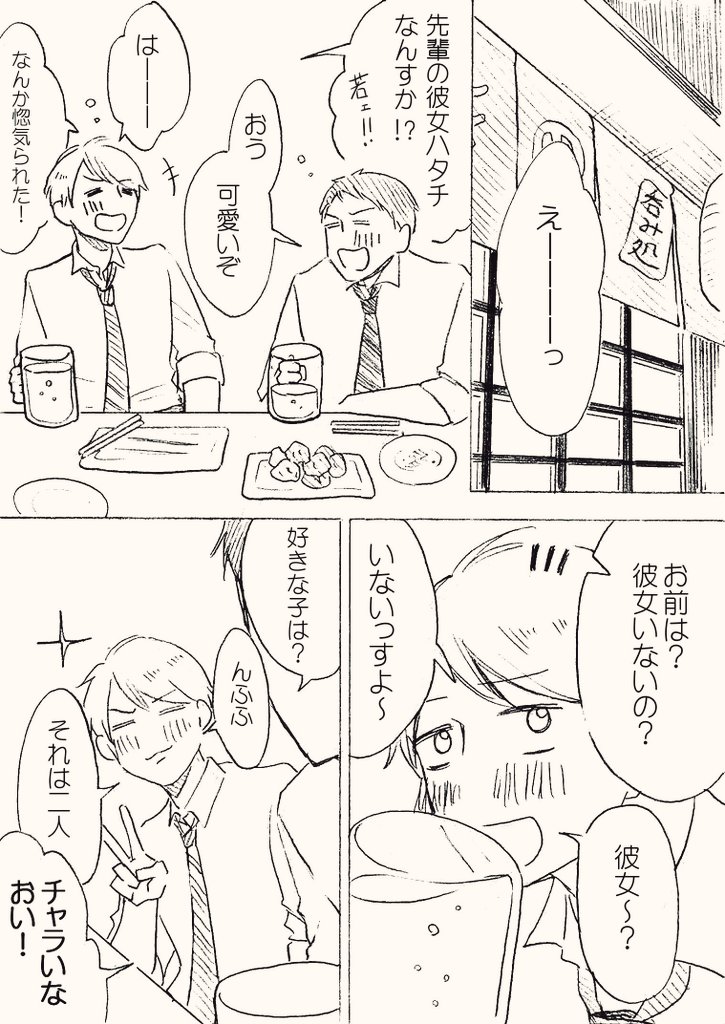 えーーーーっ
呑み処
先輩の彼女ハタチ
なんすか!?
若ェ!!
おう
可愛いぞ
はーーー
なんか惚気られた!
お前は?
彼女いないの?
彼女〜?
いないっすよ〜
好きな子は?
んふふ
それは二人
チャラいな
おい!